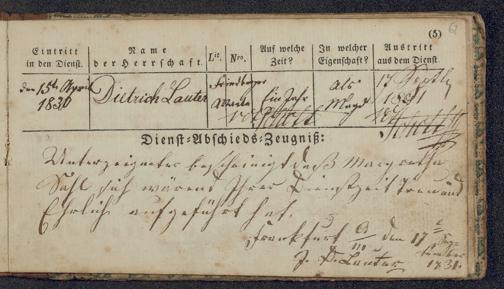 (5)
Eintritt in den Dienst. Name der Herrschaft. Lit. Nro. Auf welche Zeit? In welcher Eigenschaft? Austritt aus dem Dienst.
den 15ten April 1830 Dietrich Lauter Ein Jahr Als Magd 17 Septb 1831
Dienst-Abschieds-Zeugniß:
Unterzeigneter bescheinigt daß Margretha
Sahl sich wärend Ihrer Dienstzeit treu und
Ehrlich aufgeführt hat.
Frankfurt a/m den 17 September
J. D. Lauter 1831.